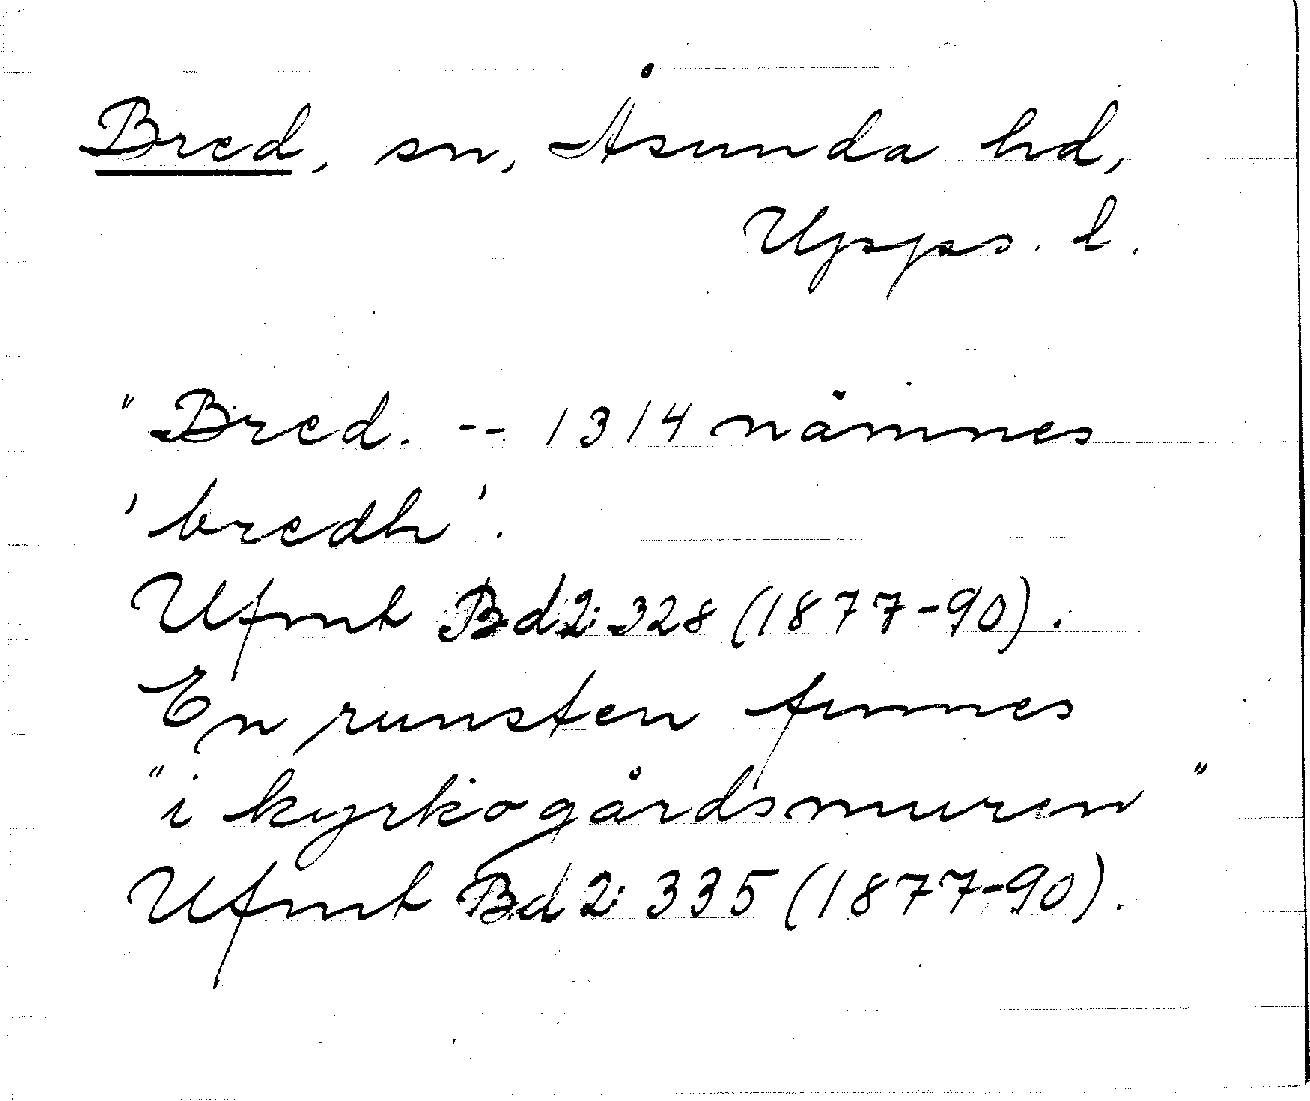 Bred, sn, Åsunda hd,
Upps. l.
"Bred. -- 1314 nämnes
'bredh'.
Ufmt Bd 2: 328 (1877-90).
En runsten finnes
"i kyrkogårdsmuren"
Ufmt Bd 2: 335 (1877-90).